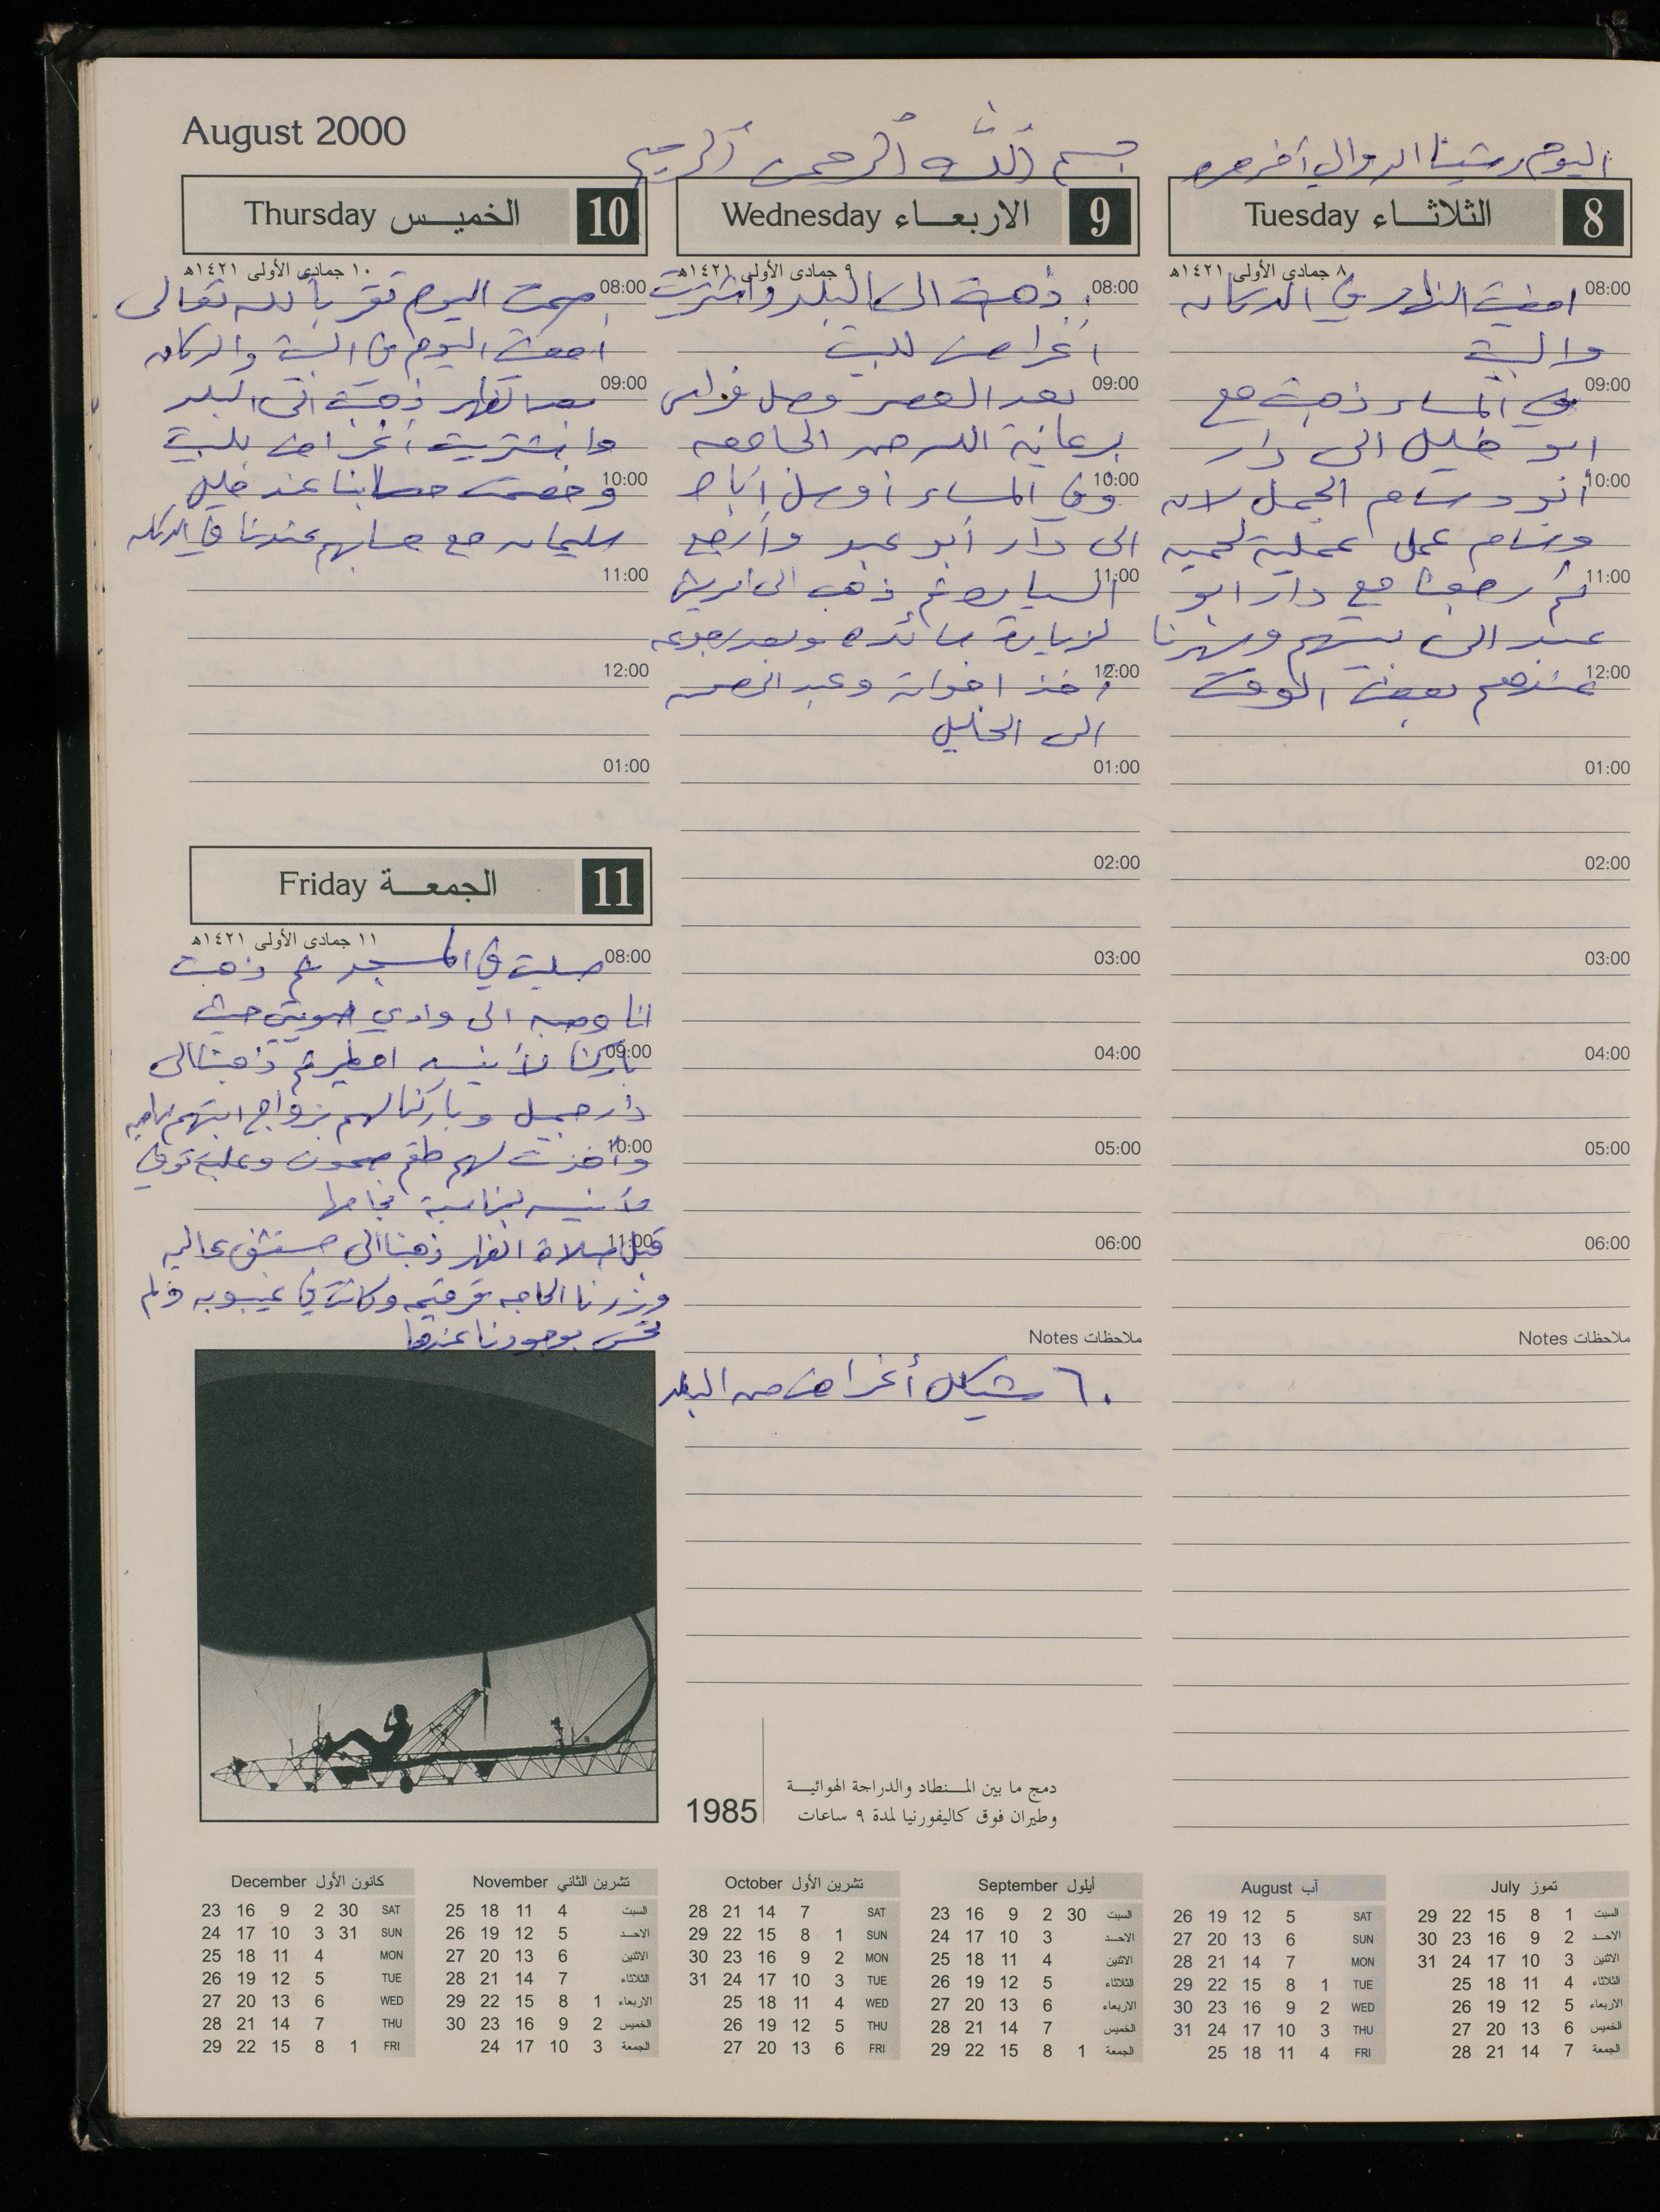 August 2000
بسم الله الرحمن الرحيم
اليوم رشينا الدوالي آخر مره
8 الثلاثـــاء Tuesday
٨ جمادى الأولى ١٤٢١هـ
08:00 امضيت النهار في الدكان
والبيت
09:00 وفي المساء ذهبت مع
ابو خليل الى دار
10:00 أبو وسام الجمل لان
وسام عمل عملية لحميه
11:00 ثم رجعنا مع دار ابو
عبد الى بيتهم وسهرنا
12:00 عندهم بعض الوقت
01:00
02:00
03:00
04:00
05:00
06:00
ملاحظات Notes
9 الاربعـــاء Wednesday
٩ جمادى الأولى ١٤٢١هـ
08:00 ذهبت الى البلد واشتريت
أغراض للبيت
09:00 بعد العصر وصل فراس
برعاية الله من الجامعه
10:00 وفي المساء أوصل إياد
الى دار أبو عبد وأرجع
11:00 السياره ثم ذهب الى
لزيارة وبعد رجوعه
12:00 أخذ اخوانه وعبد الرحمن
الى الخليل
01:00
02:00
03:00
04:00
05:00
06:00
ملاحظات Notes
٦٠ شيكل أغراض من البلد
10 الخميــس Thursday
١٠ جمادى الأولى ١٤٢١هـ
08:00 صمت اليوم تقرباً لله تعالى
أمضيت اليوم في البيت والدكان
09:00 بعد الظهر ذهبت الى البلد
واشتريت أغراض للبيت
10:00 وخصمت حسابنا عند خليل
سليمان مع حسابهم عندنا في الدكان
11:00
12:00
01:00
11 الجمعـــة Friday
١١ جمادى الأولى ١٤٢١هـ
08:00 صليت في المسجد ثم ذهبت
انا وصبه الى وادي حيث
09:00 باركنا لأنيسه ثم ذهبنا الى
دار جميل وباركنا لهم بزواج ابنتهم
10:00 وأخذت لهم طقم صحون وعلبة توفي
ولأنيسه بمناسبة نجاحها
11:00 قبل صلاة الظهر ذهبنا الى مستشفى عاليه
وزرنا الحاجه وكانت في غيبوبه ولم
تحس بوجودنا عندها
1985
دمج ما بين المـــنطاد والدراجة الهوائيـــة
وطيران فوق كاليفورنيا لمدة ٩ ساعات
تموز July
29 22 15 8 1 السبت
30 23 16 9 2 الاحـد
31 24 17 10 3 الاثنين
25 18 11 4 الثلاثاء
26 19 12 5 الاربعاء
27 20 13 6 الخميس
28 21 14 7 الجمعة
آب August
26 19 12 5 SAT
27 20 13 6 SUN
28 21 14 7 MON
29 22 15 8 1 TUE
30 23 16 9 2 WED
31 24 17 10 3 THU
25 18 11 4 FRI
أيلول September
23 16 9 2 30 السبت
24 17 10 3 الاحـد
25 18 11 4 الاثنين
26 19 12 5 الثلاثاء
27 20 13 6 الاربعاء
28 21 14 7 الخميس
29 22 15 8 1 الجمعة
تشرين الأول October
28 21 14 7 SAT
29 22 15 8 1 SUN
30 23 16 9 2 MON
31 24 17 10 3 TUE
25 18 11 4 WED
26 19 12 5 THU
27 20 13 6 FRI
تشرين الثاني November
25 18 11 4 السبت
26 19 12 5 الاحـد
27 20 13 6 الاثنين
28 21 14 7 الثلاثاء
29 22 15 8 1 الاربعاء
30 23 16 9 2 الخميس
24 17 10 3 الجمعة
كانون الأول December
23 16 9 2 30 SAT
24 17 10 3 31 SUN
25 18 11 4 MON
26 19 12 5 TUE
27 20 13 6 WED
28 21 14 7 THU
29 22 15 8 1 FRI